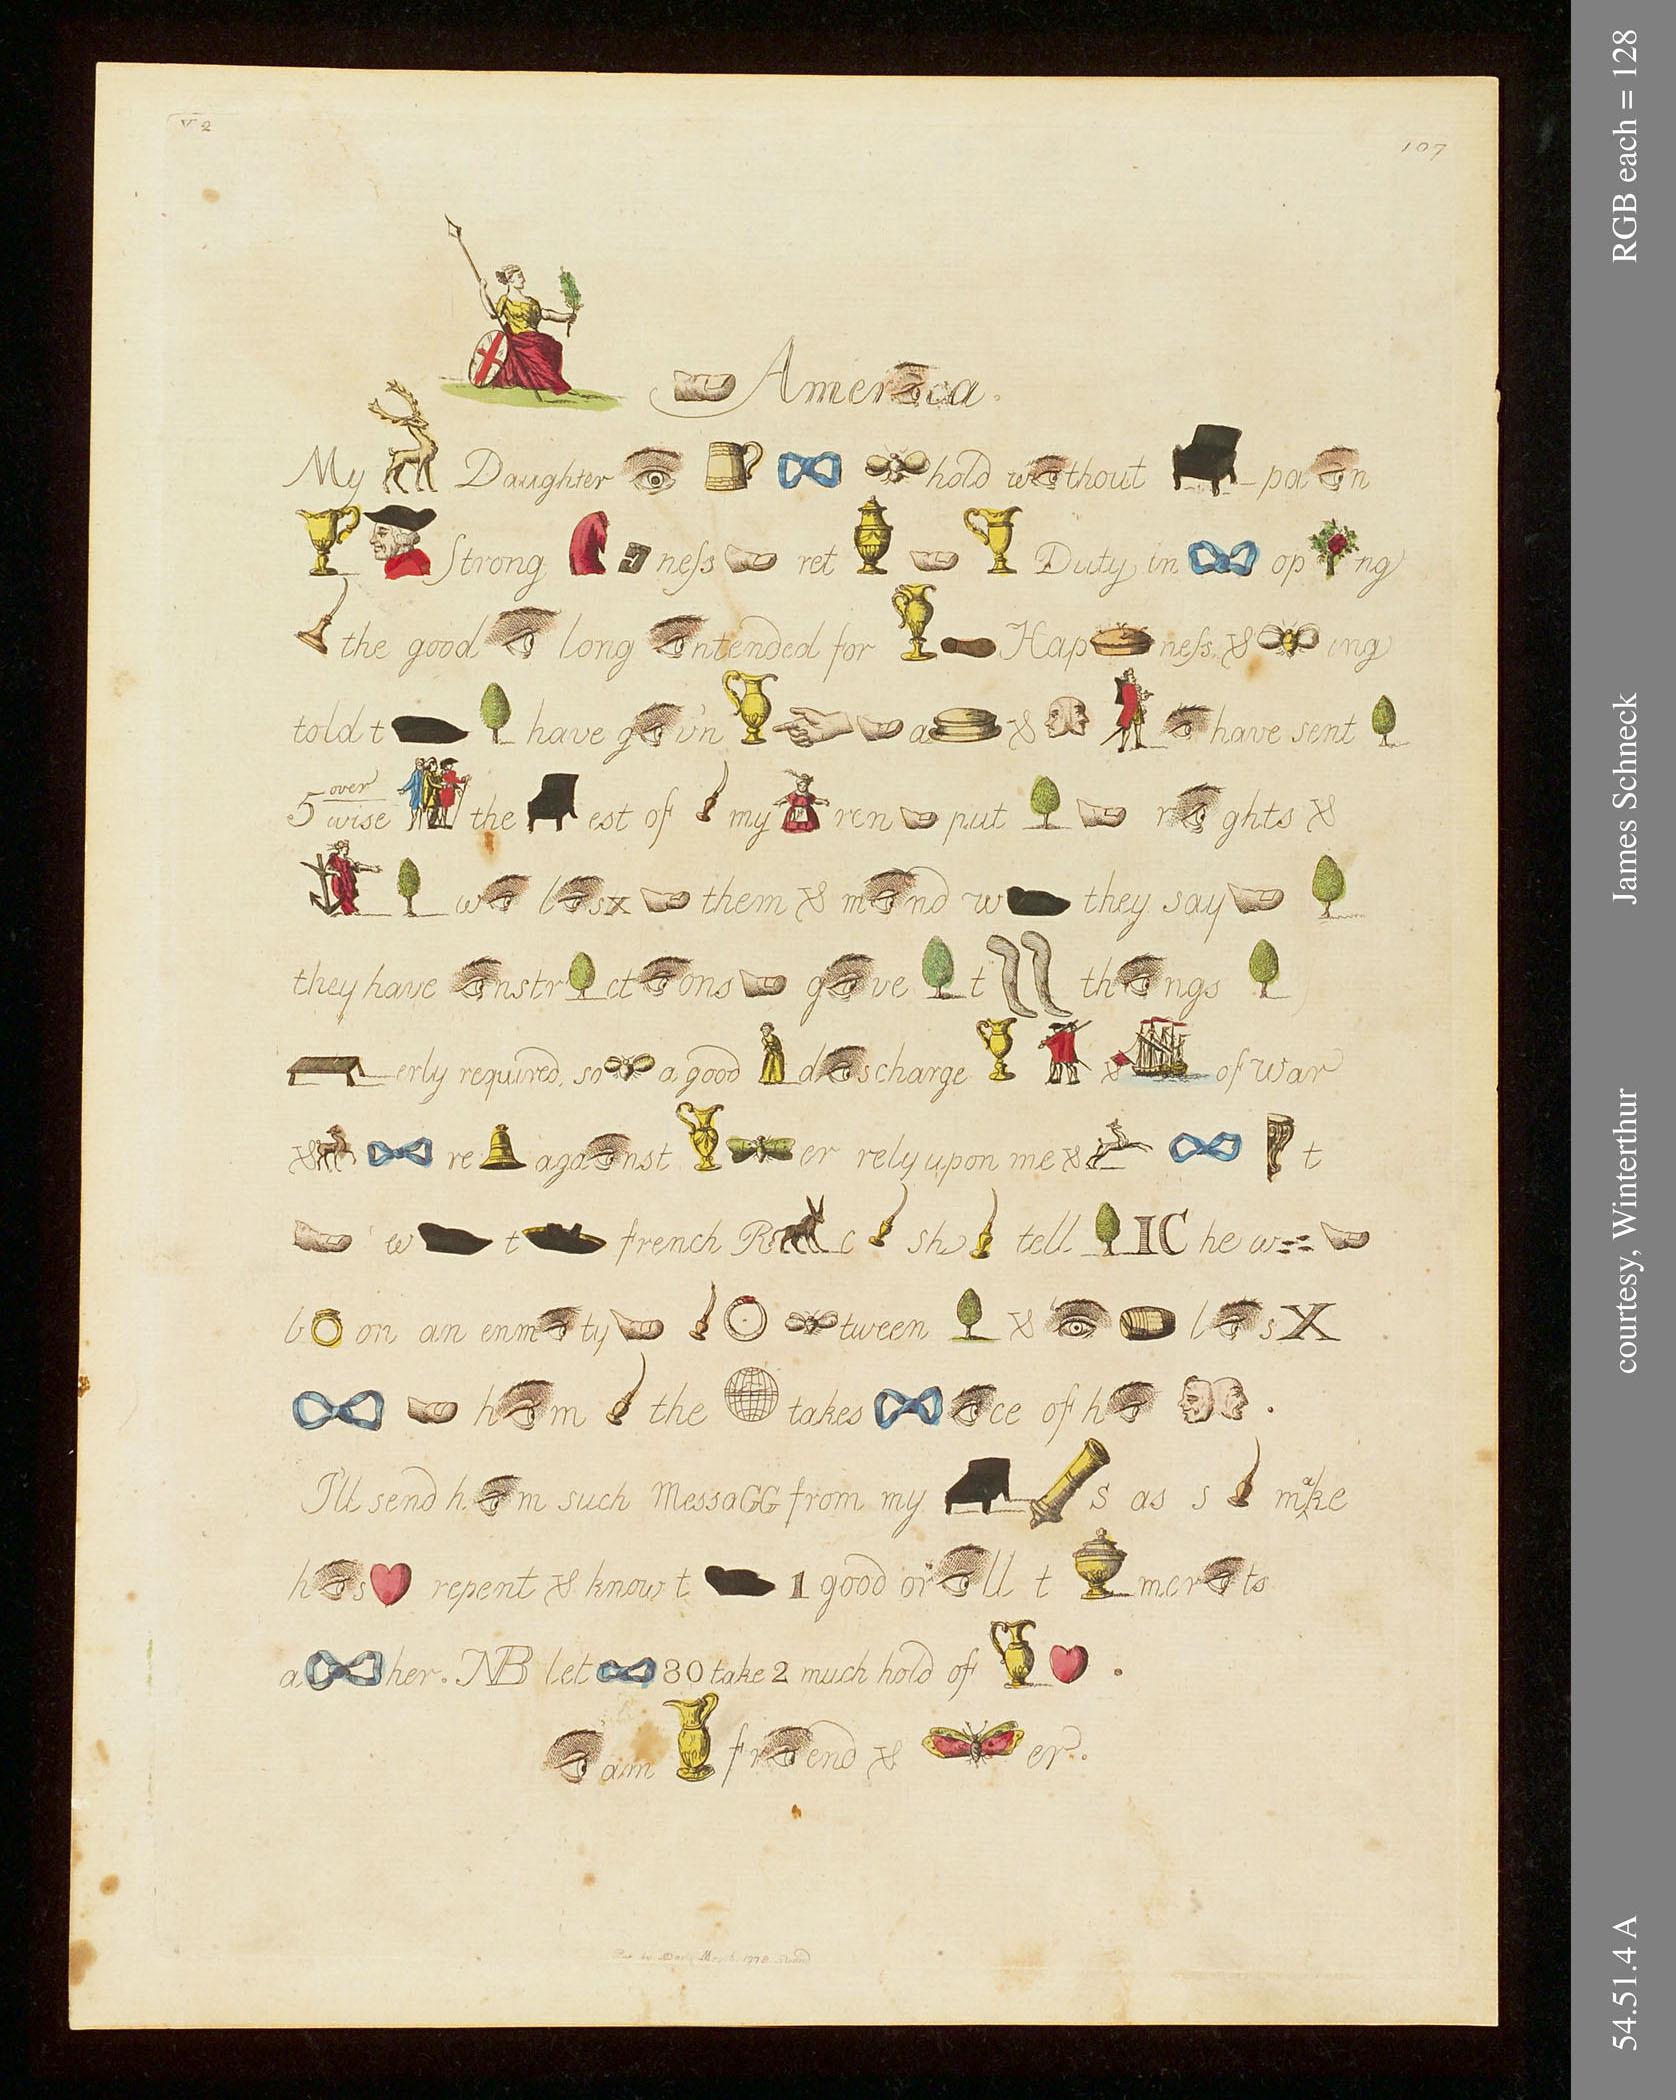 V 2
107
America.
My Daughter hold w thout pa n
Strong neſs ret Duty in op ng
the good long ntended for Hap neſs, & ing
told t have g v'n a & have sent
5 over wise the est of my ren put r ghts &
w l sx them & m nd w they say
they have nstr ct ons g ve t th ngs
erly required, so a good d scharge & of War
& re aga nst er rely upon me & t
w t french R c sh tell IC he w
b on an enm ty tween & l s X
h m the takes ce of h .
I'll send h m such MessaGG from my s as s make
h s repent & know t 1 good or ll t mer ts
a her. NB let 80 take 2 much hold of .
am fr end & er.
RGB each = 128
James Schneck
courtesy, Winterthur
54.51.4 A